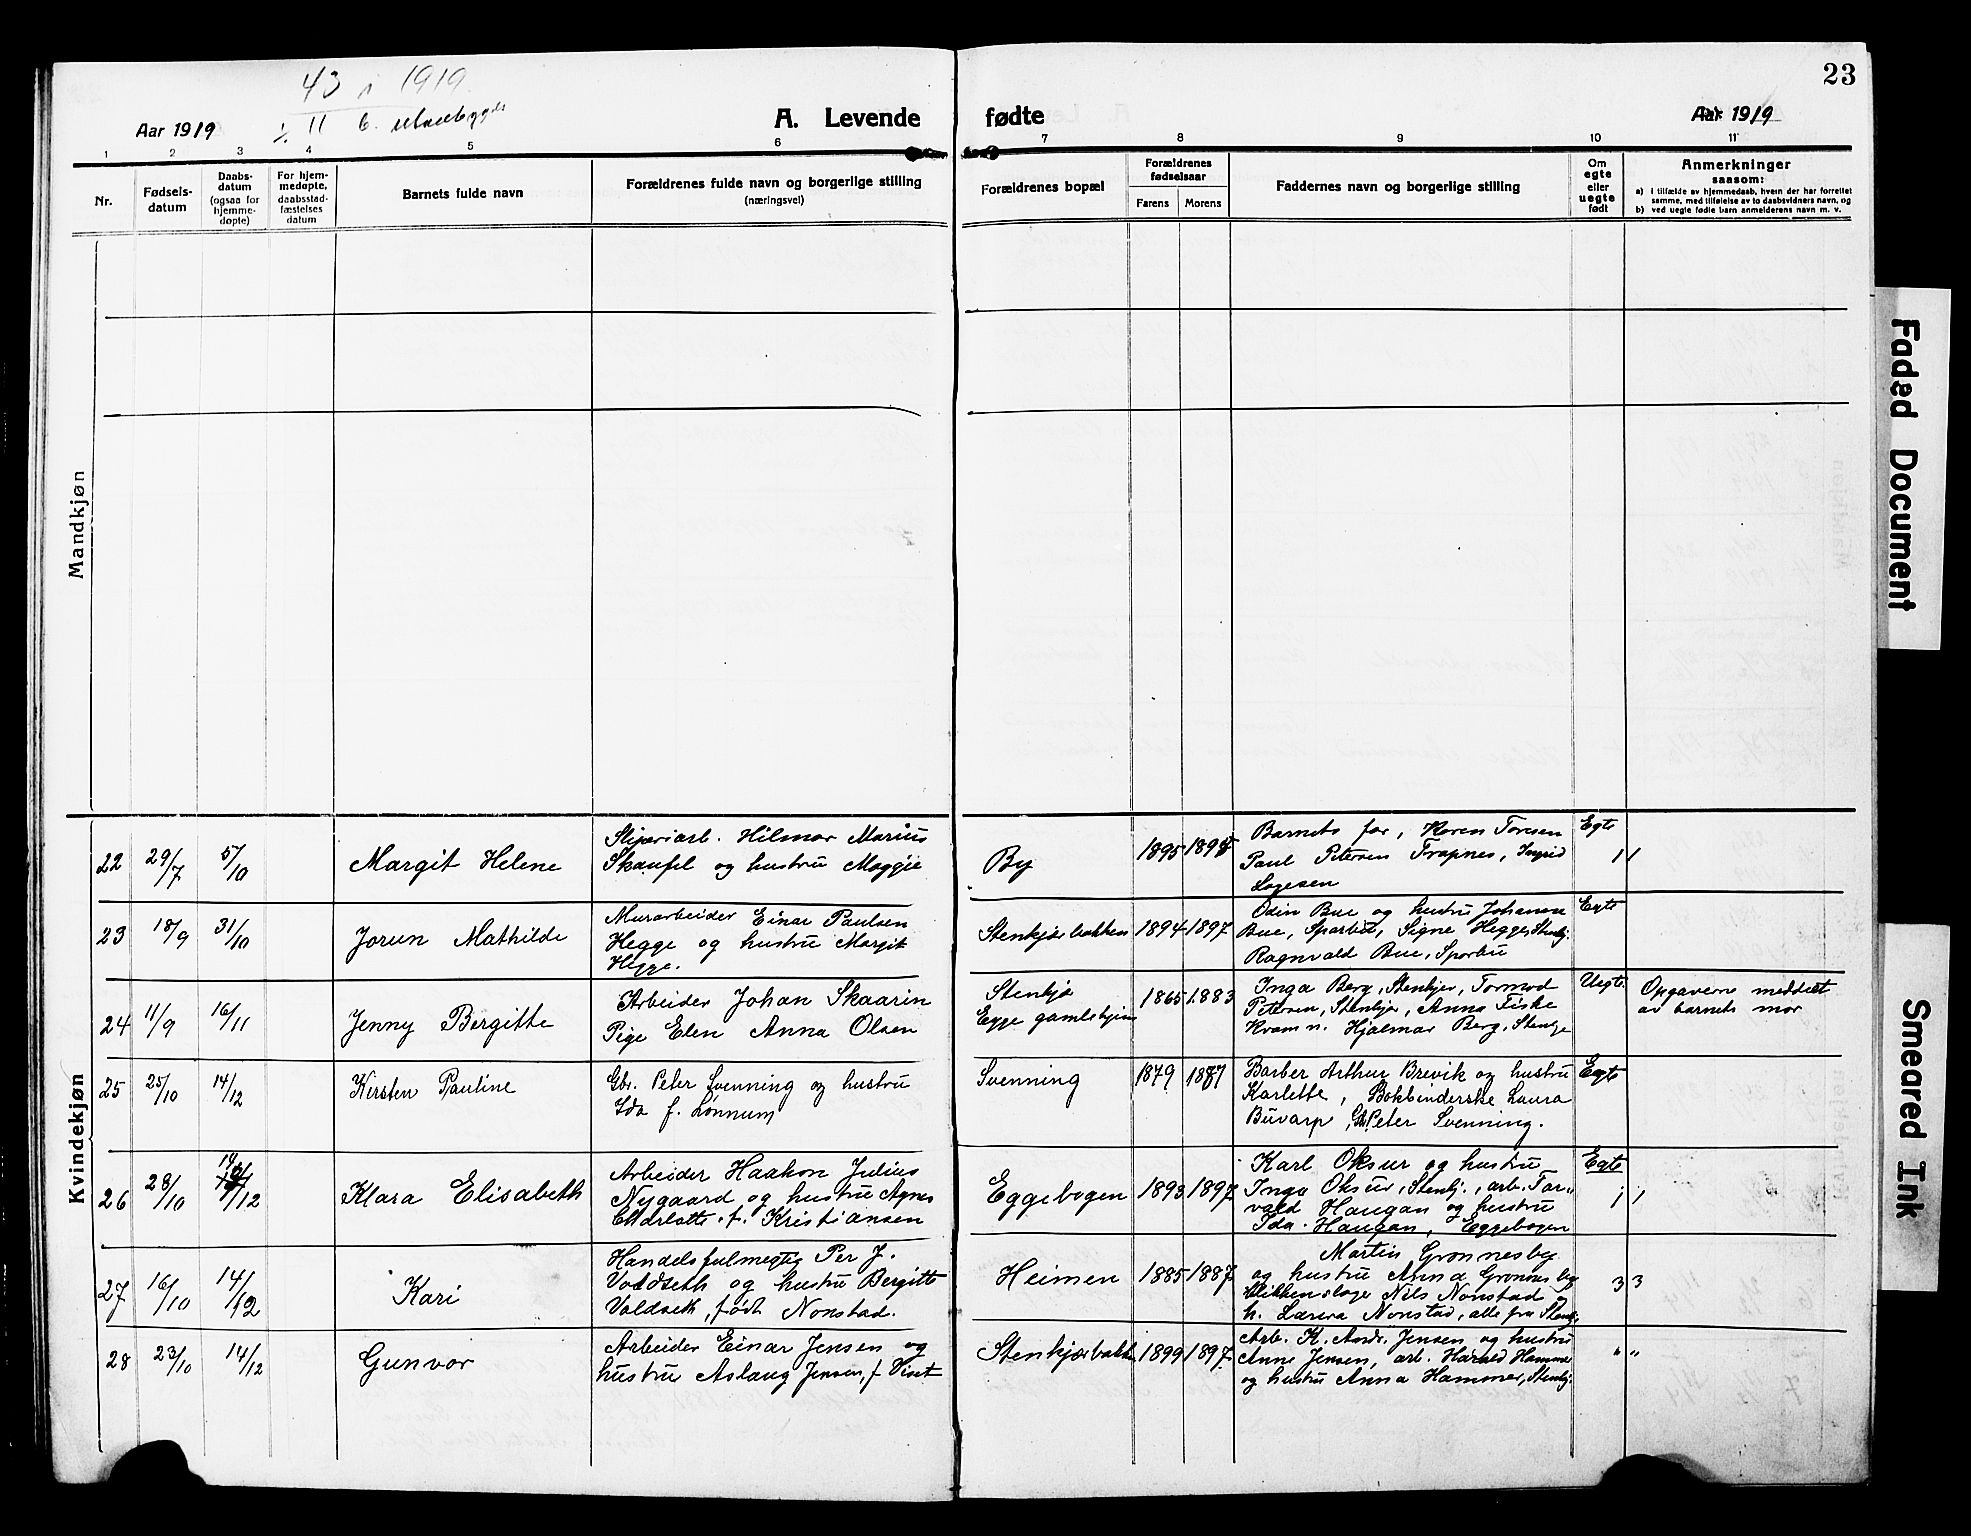 43 i 1919
11
23
Aar 1919
A. Levende
fødte
Aar 1919
1 2 3 4 5 6 7 8 9 10 11
Nr.
Fødsels-
datum
Daabs-
datum
(ogsaa for
hjemme-
døpte)
For hjem-
medøpte,
daabsstad-
fæstelses
datum
Barnets fulde navn
Forældrenes fulde navn og borgerlige stilling
(næringsvei)
Forældrenes bopæl
Forældrenes
fødselsaar
Farens Morens
Faddernes navn og borgerlige stilling
Om
egte
eller
uegte
født
Anmerkninger
saasom:
a) I tilfælde av hjemmedaab, hvem der har forrettet
samme, med tilføielse av to daabsvidners navn, og
b) ved uegte fødte barn anmelderens navn m. v.
Mandkjøn
Kvindekjøn
22 29/7 5/10 Margit Helene
Sliperiarb. Hilmar Marius
Skaufel og hustru Maggie
By 1895 1895
Barnets far, Karen Toresen
Paul Petersen Trapnes, Ingrid
Lagesen
Egte
1 1
23 18/9 31/10 Jorun Mathilde
Murarbeider Einar Paulsen
Hegge og hustru Margit
Hegge.
Stenkjærbakken 1894 1897
Odin Bue og hustru Johanna
Bue, Sparbu, Signe Hegge, Stenkj.
Ragnvald Bue, Sparbu
Egte
24 11/9 16/11 Jenny Bergitte
Arbeider Johan Skaarin
Pige Elen Anna Olsen
Stenkjær
Egge gamlehjem 1865 1883
Inga Berg, Stenkjer, Tormod
Petersen, Stenkjer, Anna Fiske
Kvam n. Hjalmar Berg, Stenkje
Uegte.
Opgaverne meddelt
av barnets mor
25 25/10 14/12 Kirsten Pauline
Gbr. Peter Svenning og hustru
Ida f. Lønnum
Svenning 1879 1887
Barber Arthur Brevik og hustru
Karlette, Bokbinderske Laura
Buvarp, Gb. Peter Svenning.
Egte
26 28/10 14/12 Klara Elisabeth
Arbeider Haakon Julius
Nygaard og hustru Agnes
Charlotte f. Kristiansen
Eggebogen 1893 1897
Karl Oksur og hustru
Inga Oksur, Stenkj., arb. Tor-
vald Haugan og hustru
Ida Haugan, Eggebogen
Egte
1 1
27 16/10 14/12 Kari
Handelsfulmegtig Per J.
Voldseth og hustru Bergitte
Voldseth, født Nonstad.
Heimen 1885 1887
Martin Grønnesby
og hustru Anna Grønnesby
Blikkenslager Nils Nonstad og
h. Laura Nonstad, alle fra Stenkj.
3 3
28 23/10 14/12 Gunvor
Arbeider Einar Jensen og
hustru Aslaug Jensen, f Vist
Stenkjærbakken 1899 1897
Arb. K. Andr. Jensen og hustru
Anne Jensen, arb. Harald Hammer
og hustru Anna Hammer, Stenkj.
" "
Faded Document
Smeared Ink